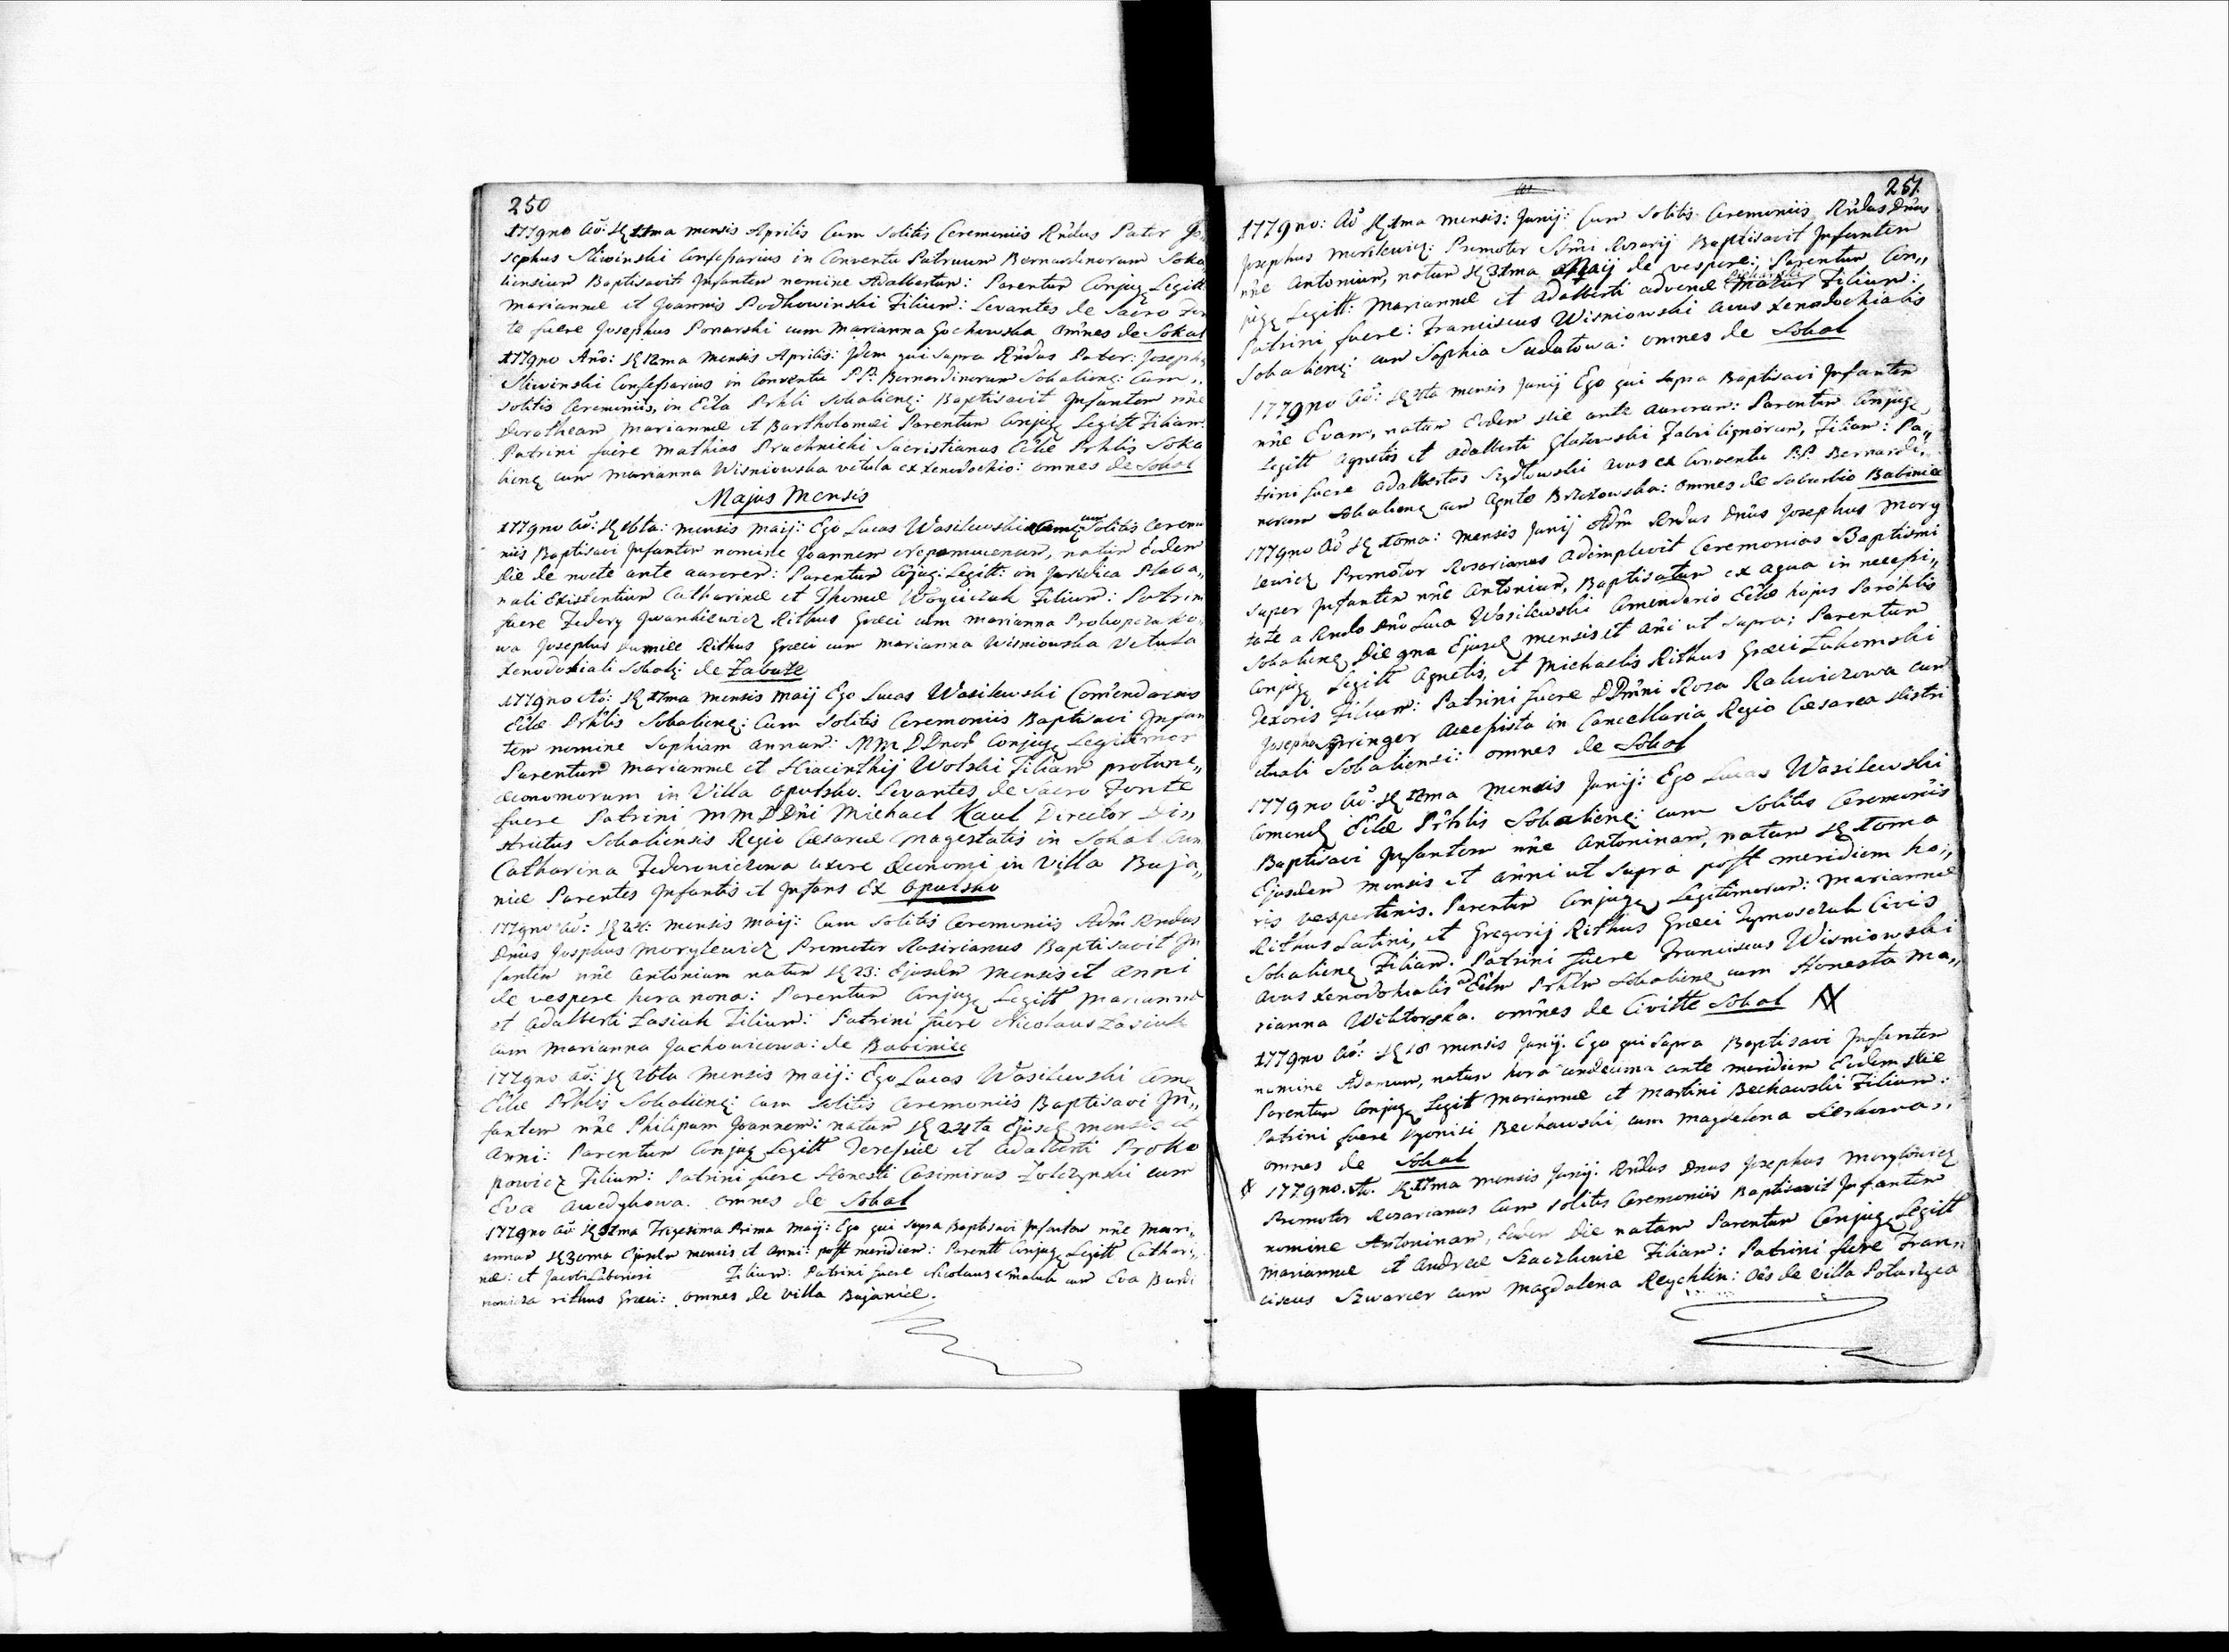 250
1779no Aõ: 11ma mensis Aprilis Cum Solitis Ceremoniis Rñdus Pater Jo
sephus Sliwinski Confessarius in Conventu Patruum Bernardinorum Soka
liensium Baptisavit Infantem nomine Adalbertum: Parentum Conjug Legitt
Mariannæ et Joannis Podhowinski Filium: Levantes de Sacro Fon
te fuere Josephus Ponarski cum Marianna Gochowska omñes de Sokal
1779no Año: 12ma Mensis Aprilis: Idem qui supra Rñdus Pater: Joseph
Sliwinski Confessarius in Conventu PP: Bernardinorum Sokalienę: Cum,,
Solitis Ceremoniis, in Ecla Prhli Sokalienę: Baptisavit Infantem nñe
Dorotheam Mariannæ et Bartholomæi Parentum Conjug Legitt Filiam:
Patrini fuere Mathias Pruchnicki Sacristianus Eclæ Prhlis Soka
lienę cum Marianna Wisniowska vetula ex xenodochio: omnes de Sokal
Majus Mensis
1779no Aõ: 16ta: mensis Maij: Ego Lucas Wasilewski cum Solitis Ceremo
niis Baptisavi Infantem nomine Joannem Nepomucenum, natum Eodem
die de nocte ante auroram: Parentum Cõjug: Legitt: in Juridica Pleba,,
nali Existentium Catharinæ et Thomæ Woyciczuk Filium: Patrini
fuere Fedory Iwankiewicz Rithus Græci cum Marianna Prokopczuko
wa Josephus Rithus Græci cum Marianna Wisniowska Vetula
xenodochiali Sokalę: de Zabuze
1779no Aõ: 17ma mensis Maij Ego Lucas Wasilewski Com̃endarius
Eclæ Prhlis Sokalienę: Cum Solitis Ceremoniis Baptisavi Infan
tem nomine Sophiam Annam: MM DDnor Conjug Legitimor
Parentum Mariannæ et Hiacinthij Wolski Filiam protunc,,
œconomorum in Villa Opulsko. Levantes de Sacro Fonte
fuere Patrini MM DDñi Michael Kaul Director Dis,,
strictus Sokaliensis Regio Cæsareæ Magestatis in Sokal Cum
Catharina Federowiczowa uxore Œconomi in Villa Buja,,
nice Parentes Infantis et Infans Ex Opulsko
1779no Aõ: 24: mensis Maij: Cum Solitis Ceremoniis Adm̃ Rndus
Dñus Josphus Morylewicz Promotor Rosirianus Baptisavit In
fantem nñe Antonium natum 23: Ejusdem Mensis et Anni
de vespere hora nona: Parentum Conjug Legitt Mariannæ
et Adalberti Łasiuk Filium: Patrini fuere Nicolaus Łasiuk
cum Marianna Jachowicowa: de Babiniec
1779no Aõ: 26ta Mensis Maij: Ego Lucas Wasilewski Com
Eclæ Prhlis Sokalienę: cum Solitis Ceremoniis Baptisavi In,,
fantem nñe Philipum Joannem: natum 24ta Ejusd mensis et
Anni: Parentum Conjug Legitt Teressiæ et Adalberti Proko
powicz Filium: Patrini fuere Honesti Casimirus Zolczynski cum
Eva Awedykowa. Omnes de Sokal
1779no Aõ 31ma Trigesima Prima Maij: Ego qui supra Baptisavi Infantem nñe Mari,,
annam 30ma Ejusdem mensis et Anni: post meridiem: Parentt Conjug Legitt Cathari,,
næ: et Jacobi Laboriosi Filium: Patrini fuere Nicolaus cum Eva
rithus Græci: omnes de Villa Bujanice.
251.
1779no: Aõ 1ma mensis: Junij: Cum Solitis Ceremoniis Rñdus Dñus
Josephus Morilewicz: Promotor Sm̃i Rosarij Baptisavit Infantem
nñe Antonium, natum 31ma Maij de vespere: Parentum Con,,
jug Legitt: Mariannæ et Adalberti advenæ Mazur Filium:
Patrini fuere: Franciscus Wisniowski Avus xenodochialis
Sokalienę: cum Sophia Sudułowa: omnes de Sokal
1779no Aõ: mensis Junij Ego qui supra Baptisavi Infantem
nñe Evam, natam Eodem die ante auroram: Parentum Conjug
Legitt Agnetis et Adalberti Głażewski Fabri lignorum, Filiam: Pa,,
trini fuere Adalbertus Szydłowski Avus ex Conventu P.P. Bernardi,,
norum Sokalienę cum Agnte Brzozowska: omnes de Suburbio Babiniec
1779no Aõ 10ma: mensis Junij Adm̃ Rndus Dñus Josephus Mory
lewicz Promotor Rosarianus adimplevit Ceremonias Baptismi
super Infantem nñe Antonium, Baptisatum ex aqua in necessi,,
tate a Rndo Dño Luca Wasilewski Comendario Eclæ hujus Paröhlis
Sokalienę Die 9na Ejusd mensis et Añi ut supra; Parentum
Conjug Legitt Agnetis, et Michaelis Rithus Græci Zukomski
Texoris Filium: Patrini fuere DDm̃ni Roza Raliwiczowa cum
Josepho Springer Accessista in Cancellaria Regio Cæsarea Distri
ctuali Sokaliensi: omnes de Sokal
1779no Aõ: 12ma Mensis Junij: Ego Lucas Wasilewski
Comend Eclæ Prhlis Sokalienę: cum Solitis Ceremoniis
Baptisavi Infantem nñe Antoninam, natam 10ma
Ejusdem mensis et añni ut supra post meridiem ho,,
ris vespertinis. Parentum Conjug Legitimorum: Mariannæ
Rithus Latini, et Gregorij Rithus Græci Tymosczuk Civis
Sokalienę Filiam. Patrini fuere Franciscus Wisniowski
Avus xenodohialis ad Eclm Prhlm Sokalienę cum Honesta Ma,,
rianna Wiktorska. omñes de Civitte Sokal
1779no Aõ: 18 mensis Junij: Ego qui supra Baptisavi Infantem
nomine Adamum, natum hora undecima ante meridiem Eodem die
Parentum Conjug Legitt Mariannæ et Martini Bechawski Filium:
Patrini fuere Dyonisi Bechawski cum Magdalena
omnes de Sokal
1779no. Aõ. 17ma mensis Junij. Rñdus Dnus Josephus Morylowicz
Promotor Rosarianus Cum solitis Ceremoniis Baptisavit Infantem
nomine Antoninam, Eodem Die natam Parentum Conjug Legitt
Mariannæ et Andreæ Szaczkowic Filiam: Patrini fuere Fran,,
ciscus Szwarcer cum Magdalena Reychlin: Oẽs de Villa Poturzyca